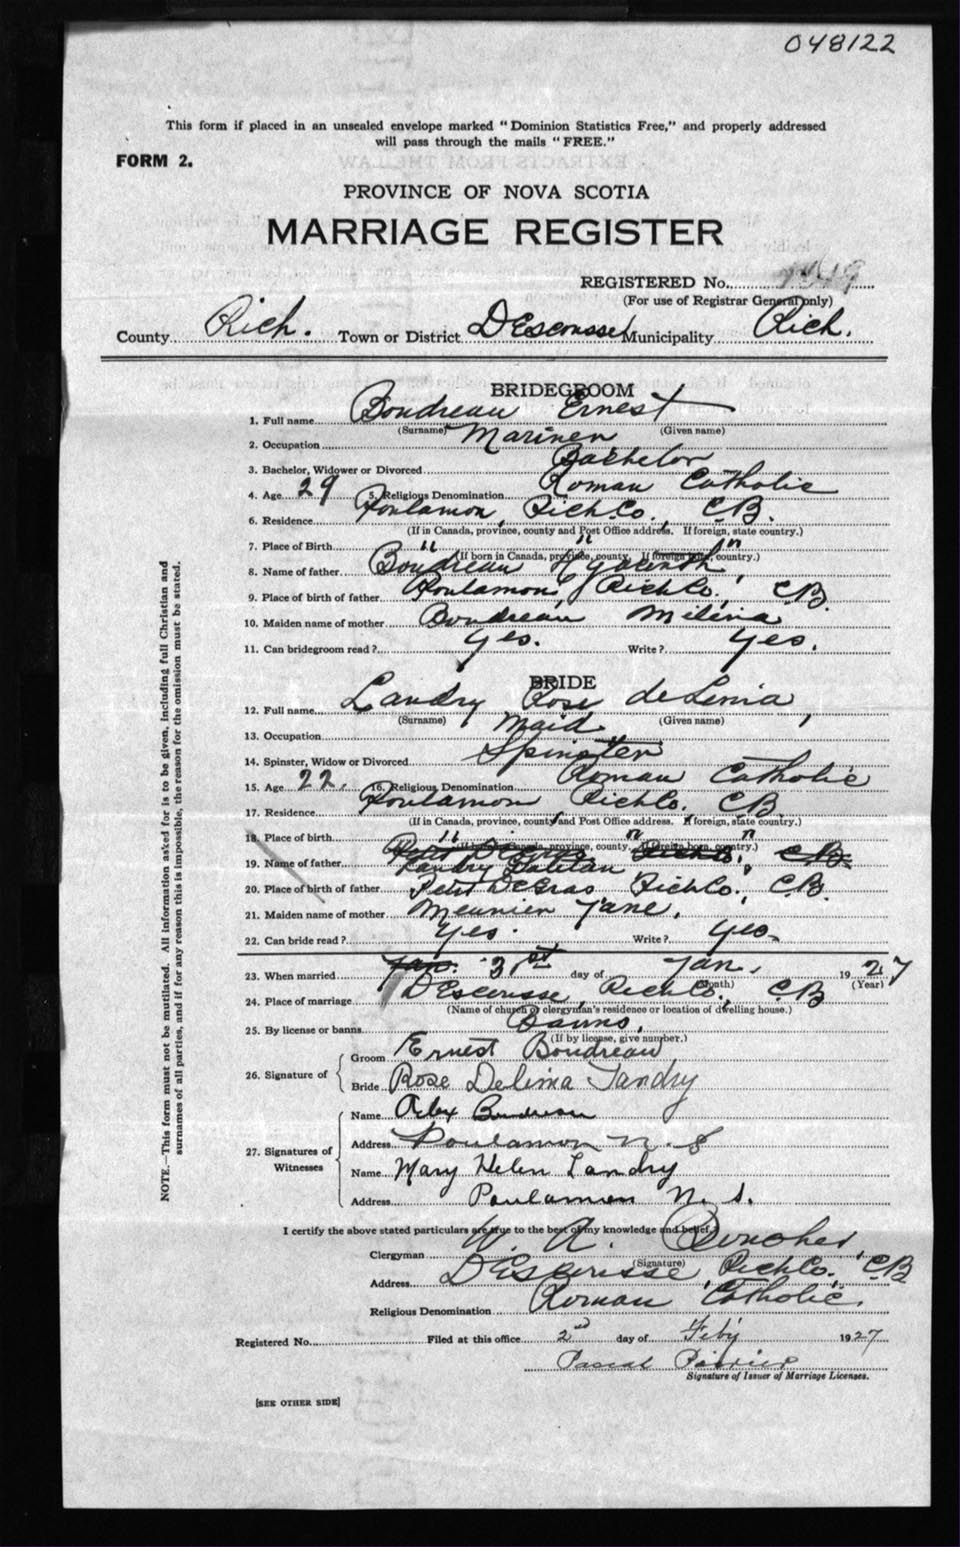 048122
This form if placed in an unsealed envelope marked "Dominion Statistics Free," and properly addressed
will pass through the mails "FREE."
FORM 2.
PROVINCE OF NOVA SCOTIA
MARRIAGE REGISTER
REGISTERED No.
(For use of Registrar General only)
County Rich. Town or District D'Escousse Municipality Rich.
BRIDEGROOM
1. Full name Boudreau Ernest
(Surname) (Given name)
2. Occupation Mariner
3. Bachelor, Widower or Divorced Bachelor
4. Age 29 5. Religious Denomination Roman Catholic
6. Residence Poulamon, Rich Co. C.B.
(If in Canada, province, county and Post Office address. If foreign, state country.)
7. Place of Birth " " "
(If born in Canada, province, county. If foreign born, country.)
8. Name of father Boudreau Hyacinth,
9. Place of birth of father Poulamon, Rich Co., C.B.
10. Maiden name of mother Boudreau Milina
11. Can bridegroom read? Yes. Write? Yes.
BRIDE
12. Full name Landry Rose de Lima,
(Surname) (Given name)
13. Occupation Maid
14. Spinster, Widow or Divorced Spinster
15. Age 22. 16. Religious Denomination Roman Catholic
17. Residence Poulamon Rich Co. C.B.
(If in Canada, province, county and Post Office address. If foreign, state country.)
18. Place of birth " " "
(If born in Canada, province, county. If foreign born, country.)
19. Name of father Landry
20. Place of birth of father Petit De Gras Rich Co., C.B.
21. Maiden name of mother Meunier Jane,
22. Can bride read? Yes. Write? Yes.
23. When married Jan. 31st day of Jan. 1927
(Month) (Year)
24. Place of marriage D'Escousse, Rich Co., C.B
(Name of church or clergyman's residence or location of dwelling house.)
25. By license or banns Banns.
(If by license, give number.)
26. Signature of
Groom Ernest Boudreau
Bride Rose Delima Landry
27. Signatures of Witnesses
Name Alex Boudreau
Address Poulamon N. S
Name Mary Helen Landry
Address Poulamon N. S.
I certify the above stated particulars are true to the best of my knowledge and belief.
Clergyman W. A.
(Signature)
Address D'Escousse, Rich Co., C.B
Religious Denomination Roman Catholic.
Registered No. Filed at this office 2nd day of Feby 1927
Pascal Poirier
Signature of Issuer of Marriage Licenses.
[SEE OTHER SIDE]
NOTE.—This form must not be mutilated. All information asked for is to be given, including full Christian and
surnames of all parties, and if for any reason this is impossible, the reason for the omission must be stated.